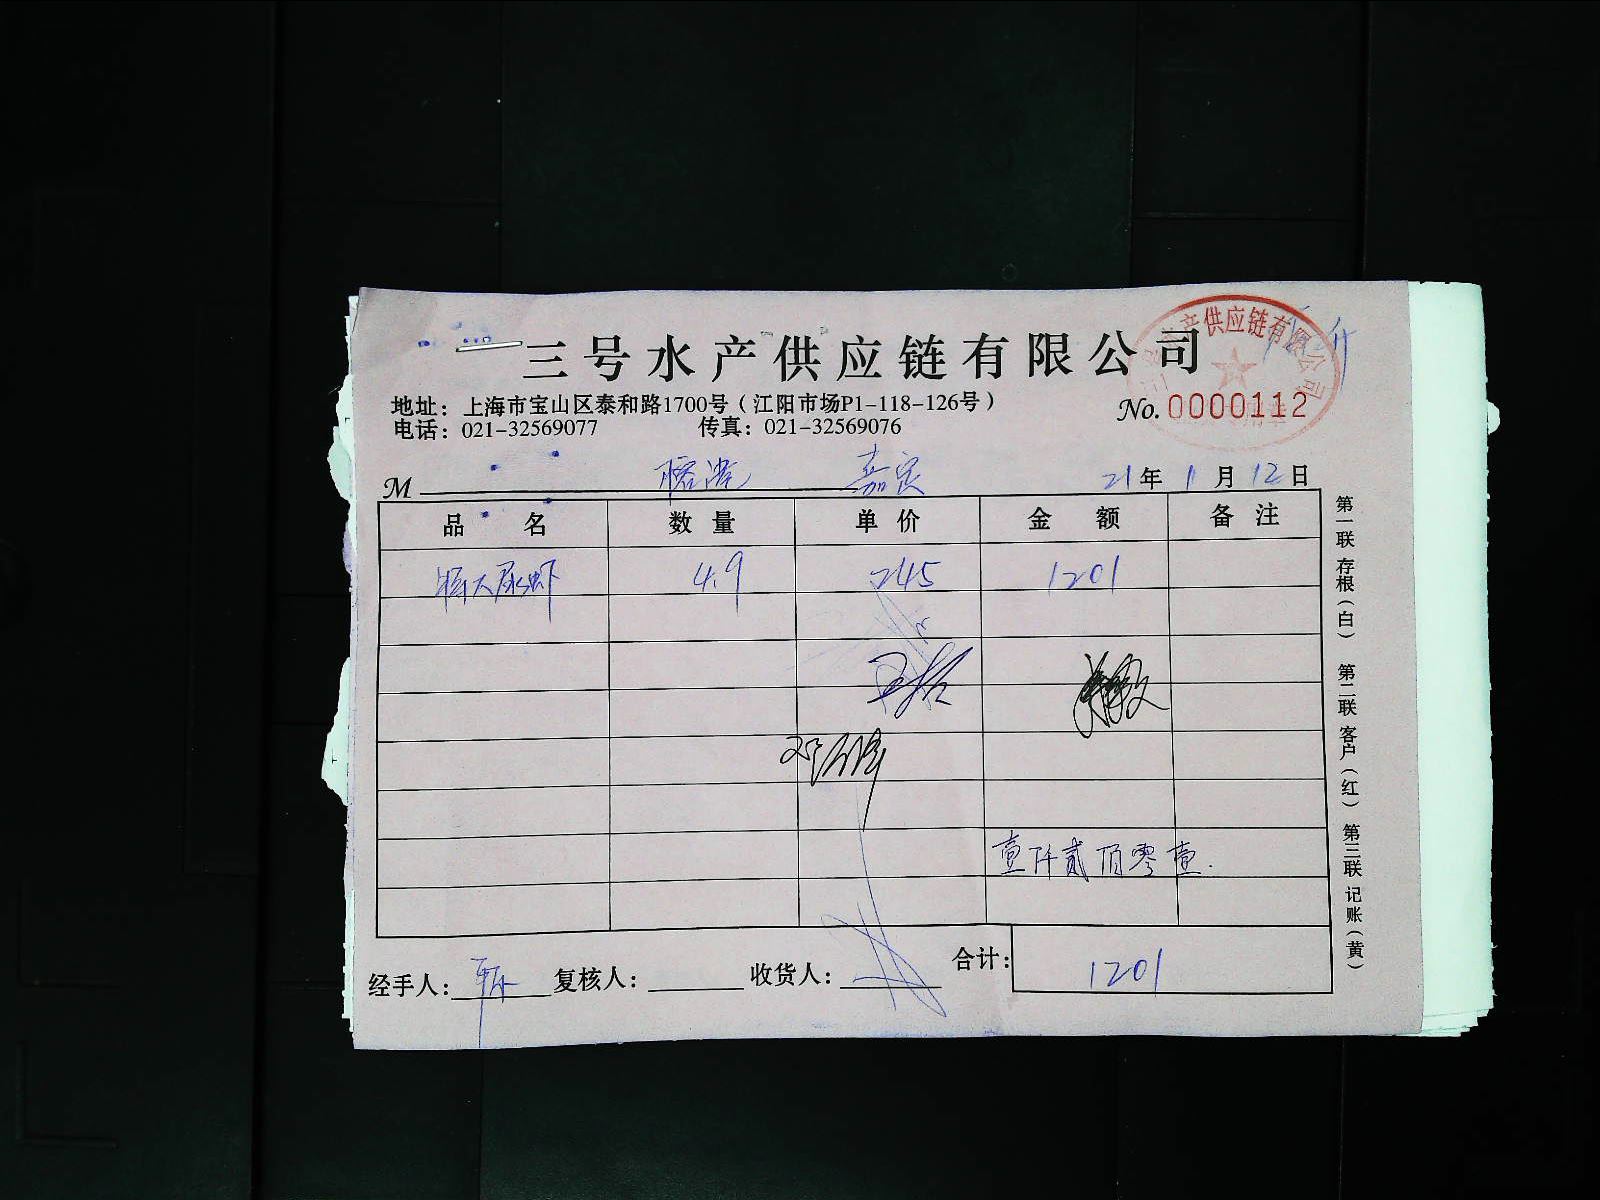 三号水产供应链有限公司
地址：上海市宝山区泰和路1700号（江阳市场P1-118-126号）
电话：021-32569077 传真：021-32569076
No. 0000112
M 嘉定 21年1月12日
品名 数量 单价 金额 备注
4.9 245 1201
壹仟贰佰零壹.
经手人： 复核人： 收货人： 合计：1201
第一联 存根（白） 第二联 客户（红） 第三联 记账（黄）
产供应链有限公司